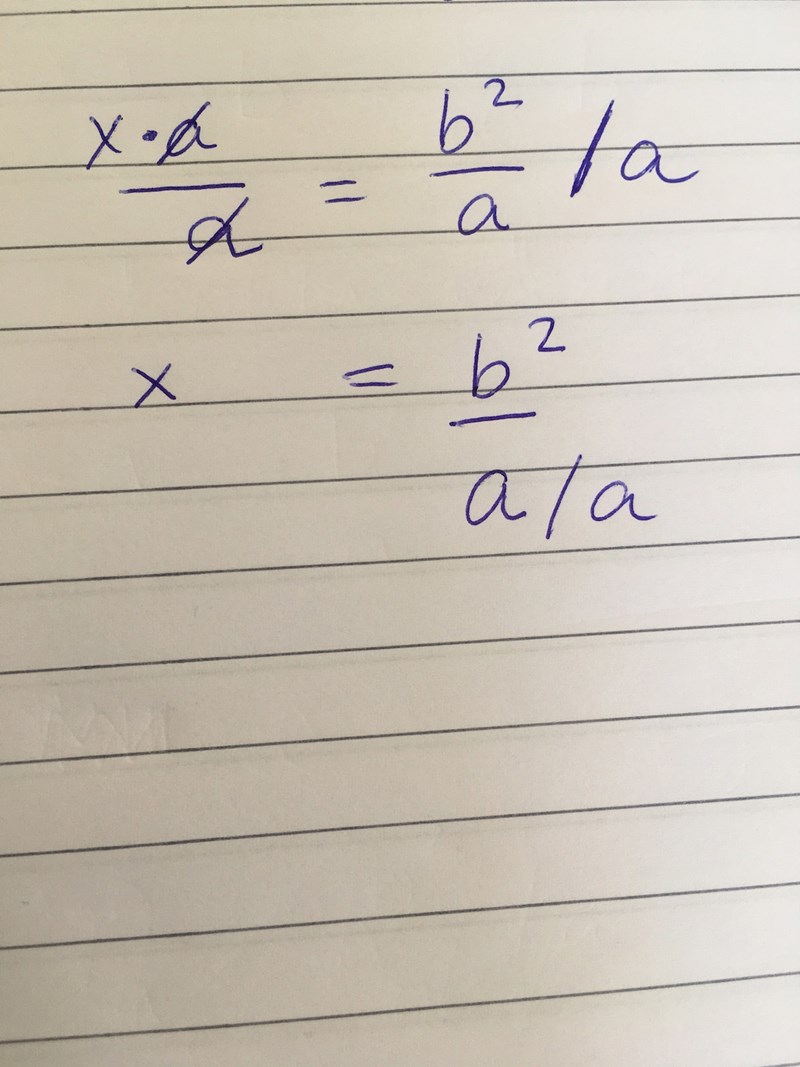 x·a/a = b²/a /a
x = b²/a/a